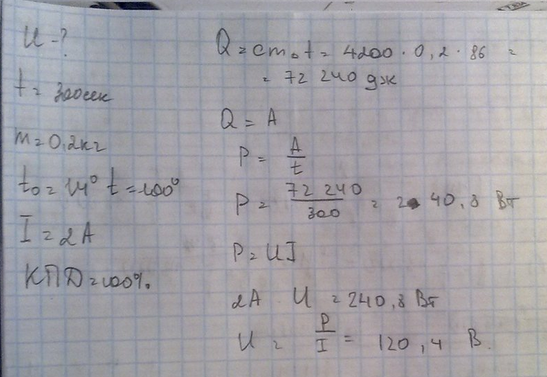 U - ?
t = 300 сек
m = 0,2 кг
t₀ = 14° t = 100°
I = 2А
КПД = 100%.
Q = cm₀t = 4200 · 0,2 · 86 =
= 72 240 дж
Q = A
P = A/t
P = 72 240/300 = 240,8 Вт
P = UI
2А U = 240,8 Вт
U = P/I = 120,4 В.